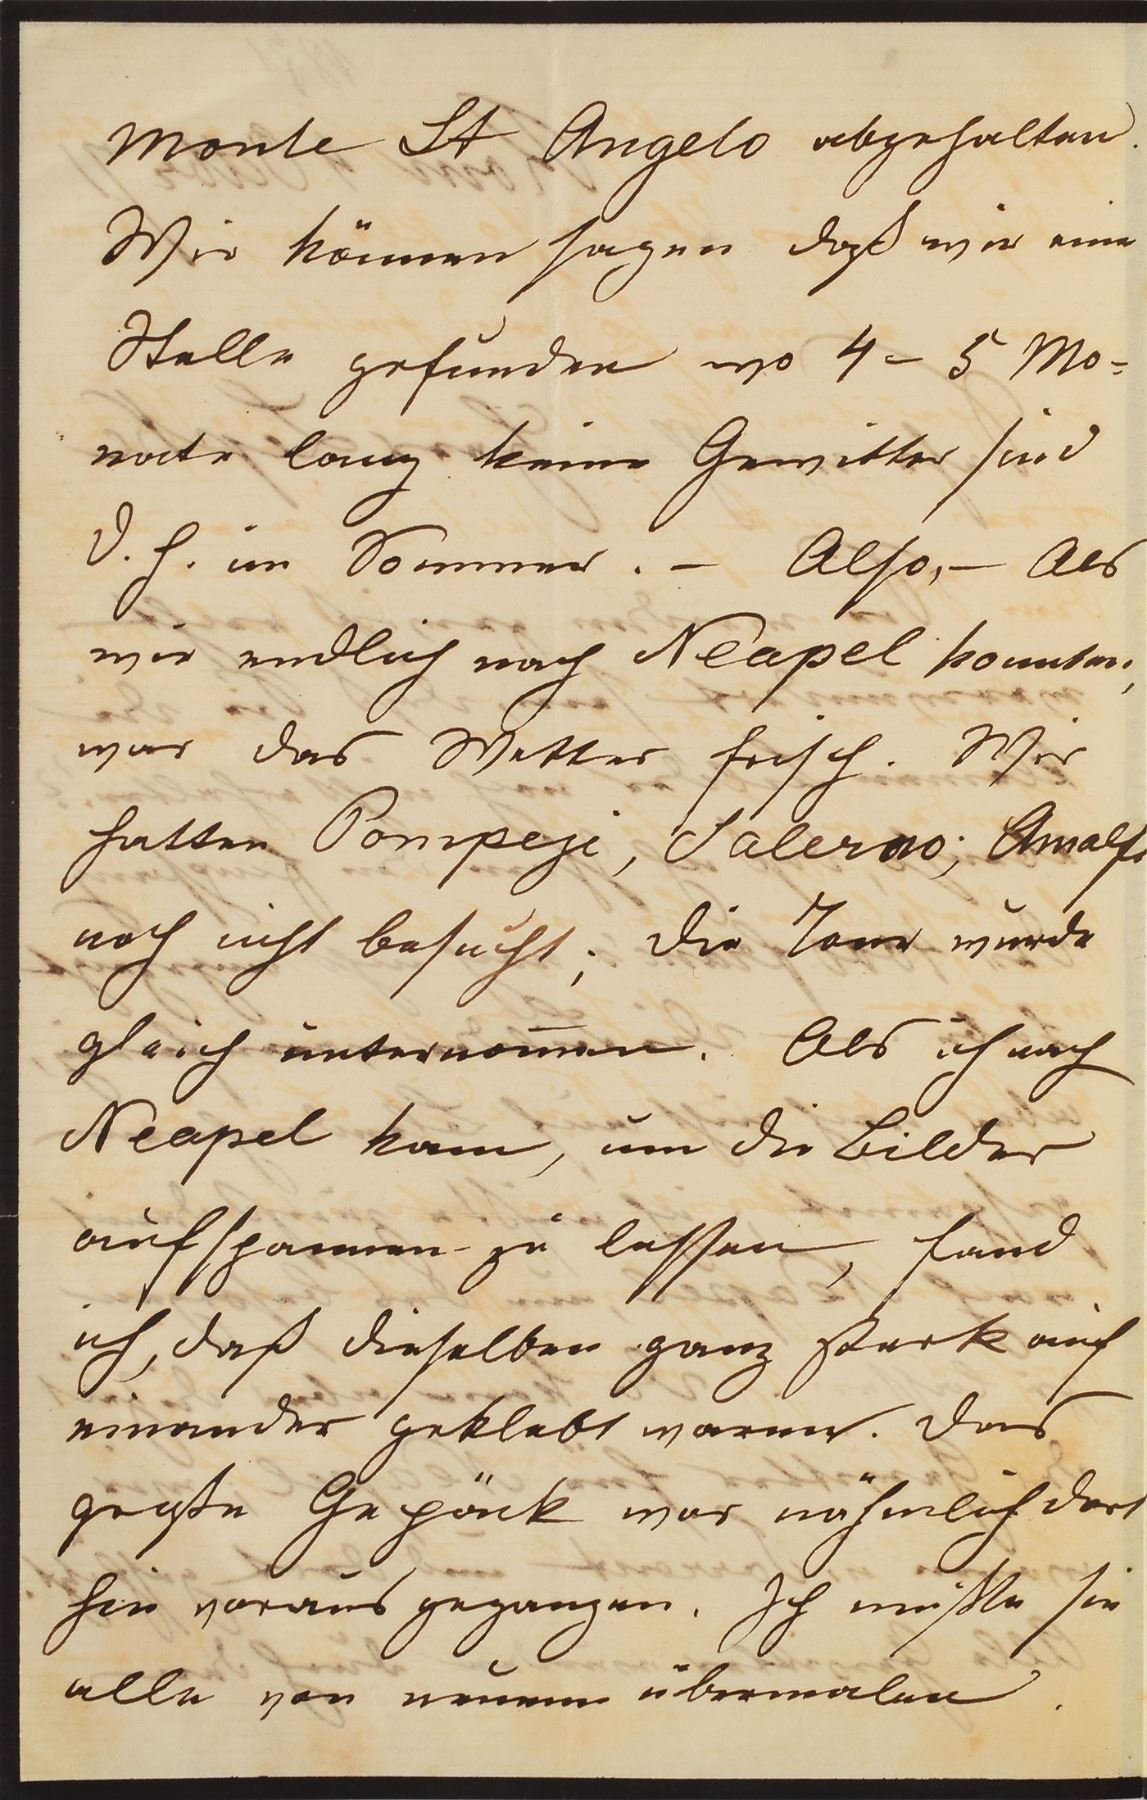 Monte St Angelo abgehalten.
Wir können sagen daß wir eine
Stelle gefunden wo 4 - 5 Mo-
nate lang keine Gewitter sind
d. h. im Sommer. – Also, – Als
wir endlich nach Neapel konnten,
war das Wetter frisch. Wir
hatten Pompeji, Salerno, Amalfi
noch nicht besucht; die Tour wurde
gleich unternom̅en. Als ich nach
Neapel kam, um die Bilder
aufspannen zu lassen, fand
ich, daß dieselben ganz stark auf
einander geklebt waren. Das
große Gepäck war nähmlich dort
hin voraus gegangen. Ich mußte sie
alle von neuem übermalen.